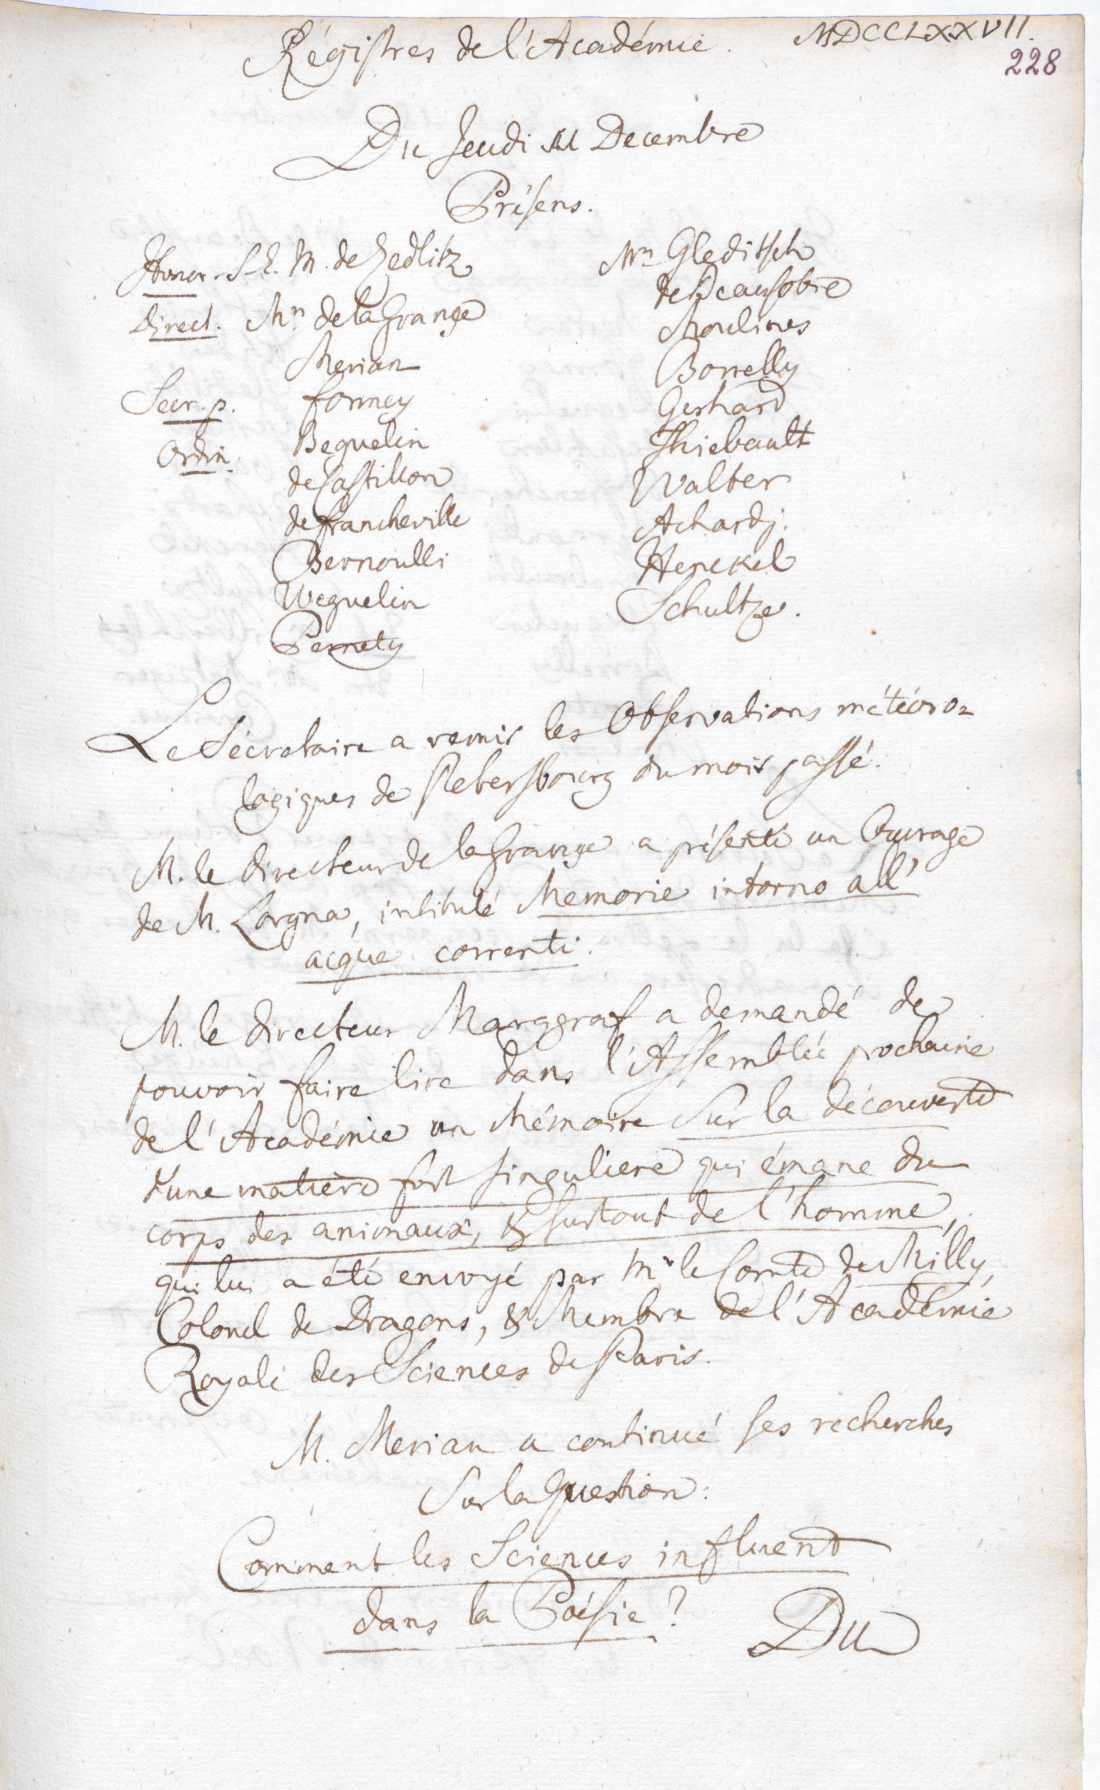 Régistres de l'Académie. MDCCLXXVII.
228
Du Jeudi 11 Decembre
Présens.
Honor. S. E. M. de Zedlitz
Direct. Mrs de la Grange
Merian
Secr. p. Formey
Ordin. Beguelin
de Castillon
de Francheville
Bernoulli
Weguelin
Pernety
Mrs Gleditsch
de Beausobre
Moulines
Borrelly
Gerhard
Thiebault
Walter
Achard j.
Henckel
Schultze.
Le Sécretaire a remis les Observations météoro=
logiques de Petersbourg du mois passé.
M. le Directeur de la Grange a présenté un Ouvrage
de M. Lorgna, intitulé Memorie intorno all'
acque correnti.
M. le Directeur Marggraf a demandé de
pouvoir faire lire dans l'Assemblée prochaine
de l'Académie un Mémoire sur la découverte
d'une matiere fort singuliere qui émane du
corps des animaux, & surtout de l'homme,
qui lui a été envoyé par Mr le Comte de Milly,
Colonel de Dragons, & Membre de l'Académie
Royale des Sciences de Paris.
M. Merian a continué ses recherches
sur la Question:
Comment les Sciences influent
dans la Poésie?
Du